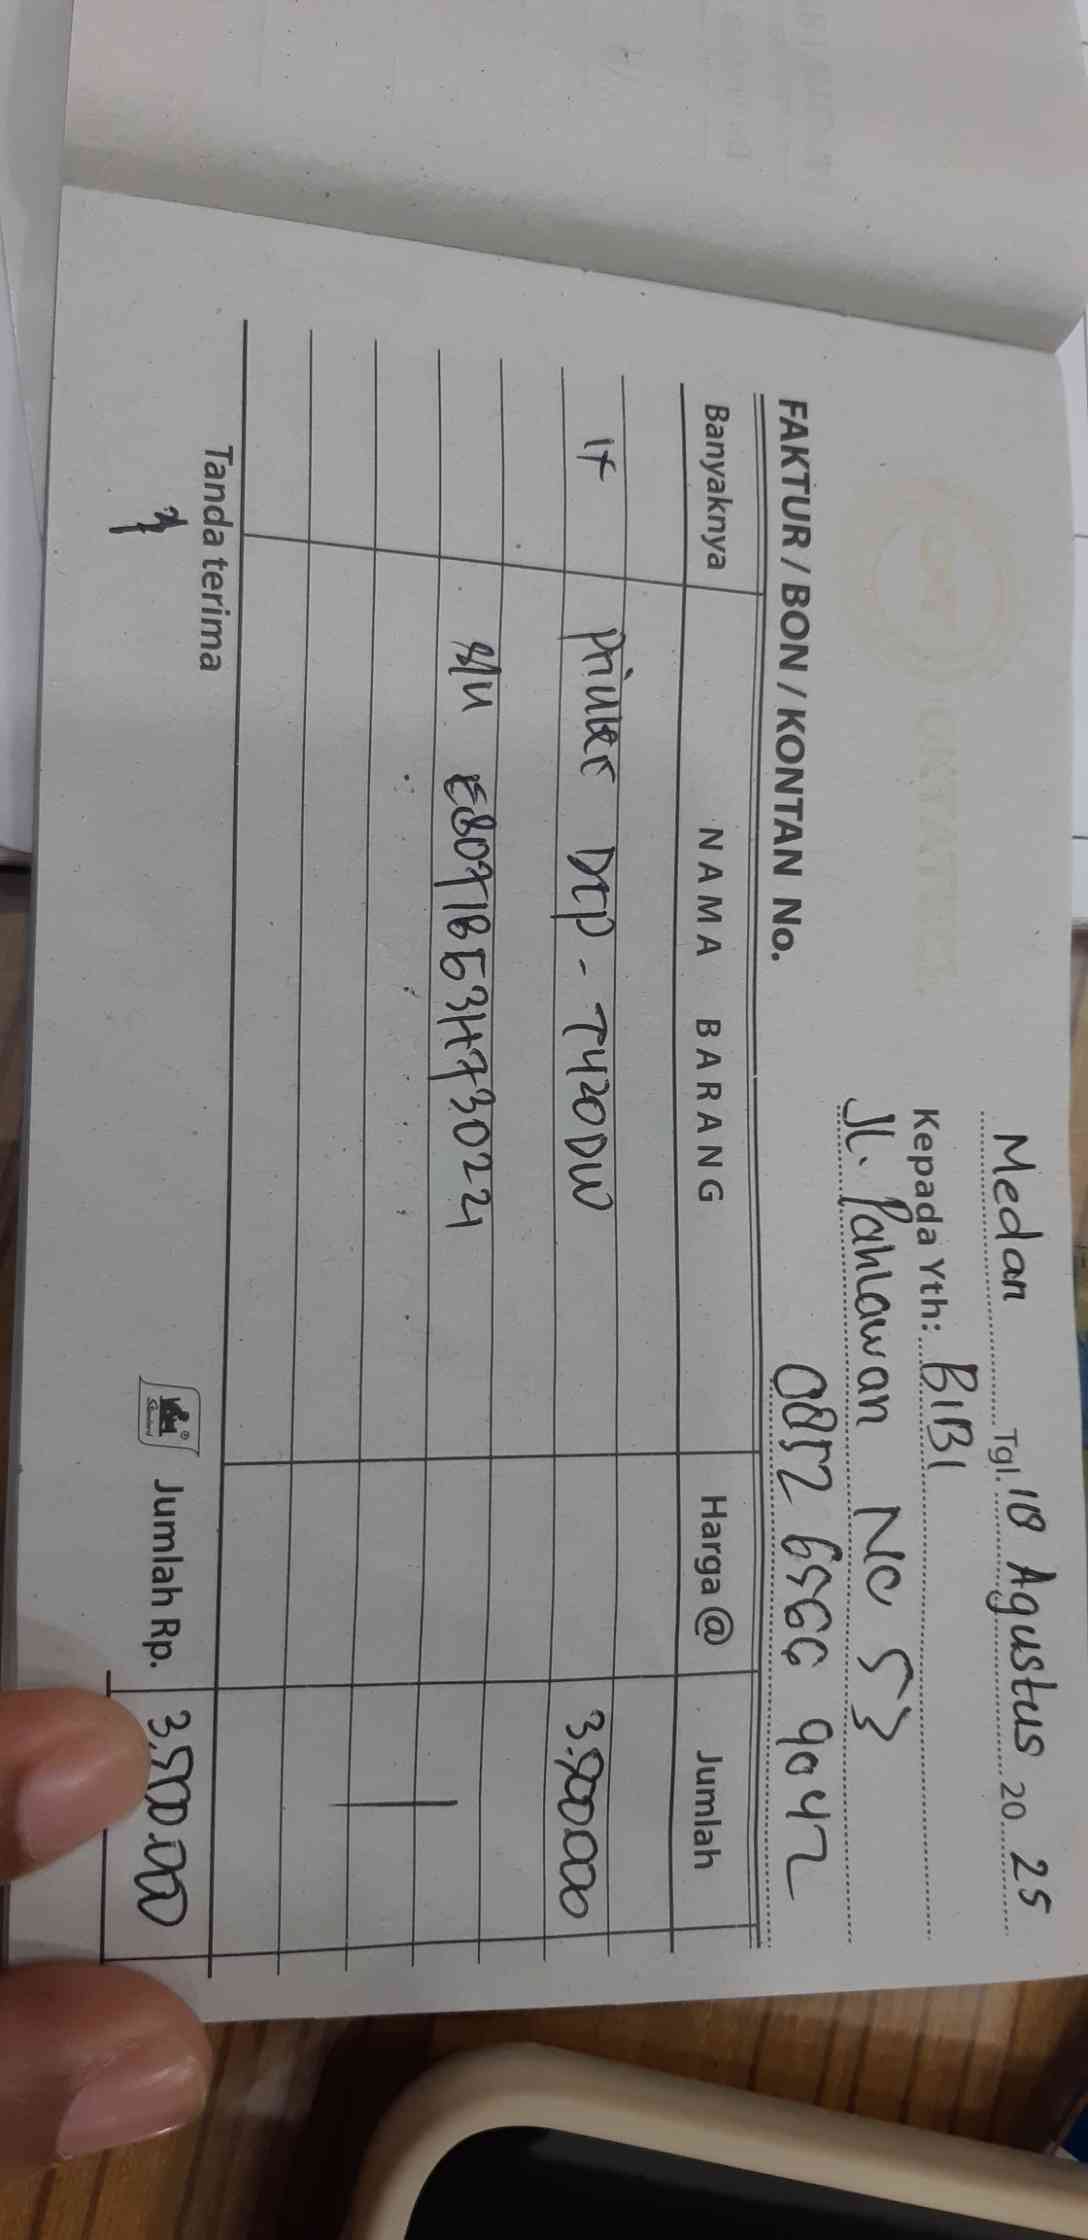 Medan Tgl. 18 Agustus 20 25
Kepada Yth: BIBI
Jl. Pahlawan No 53
0812 6566 9042
FAKTUR / BON / KONTAN No.
Banyaknya NAMA BARANG Harga @ Jumlah
1x Printer DCP - T420DW 3.500.000
S/N E80971B53H730221
Tanda terima Jumlah Rp. 3.500.000